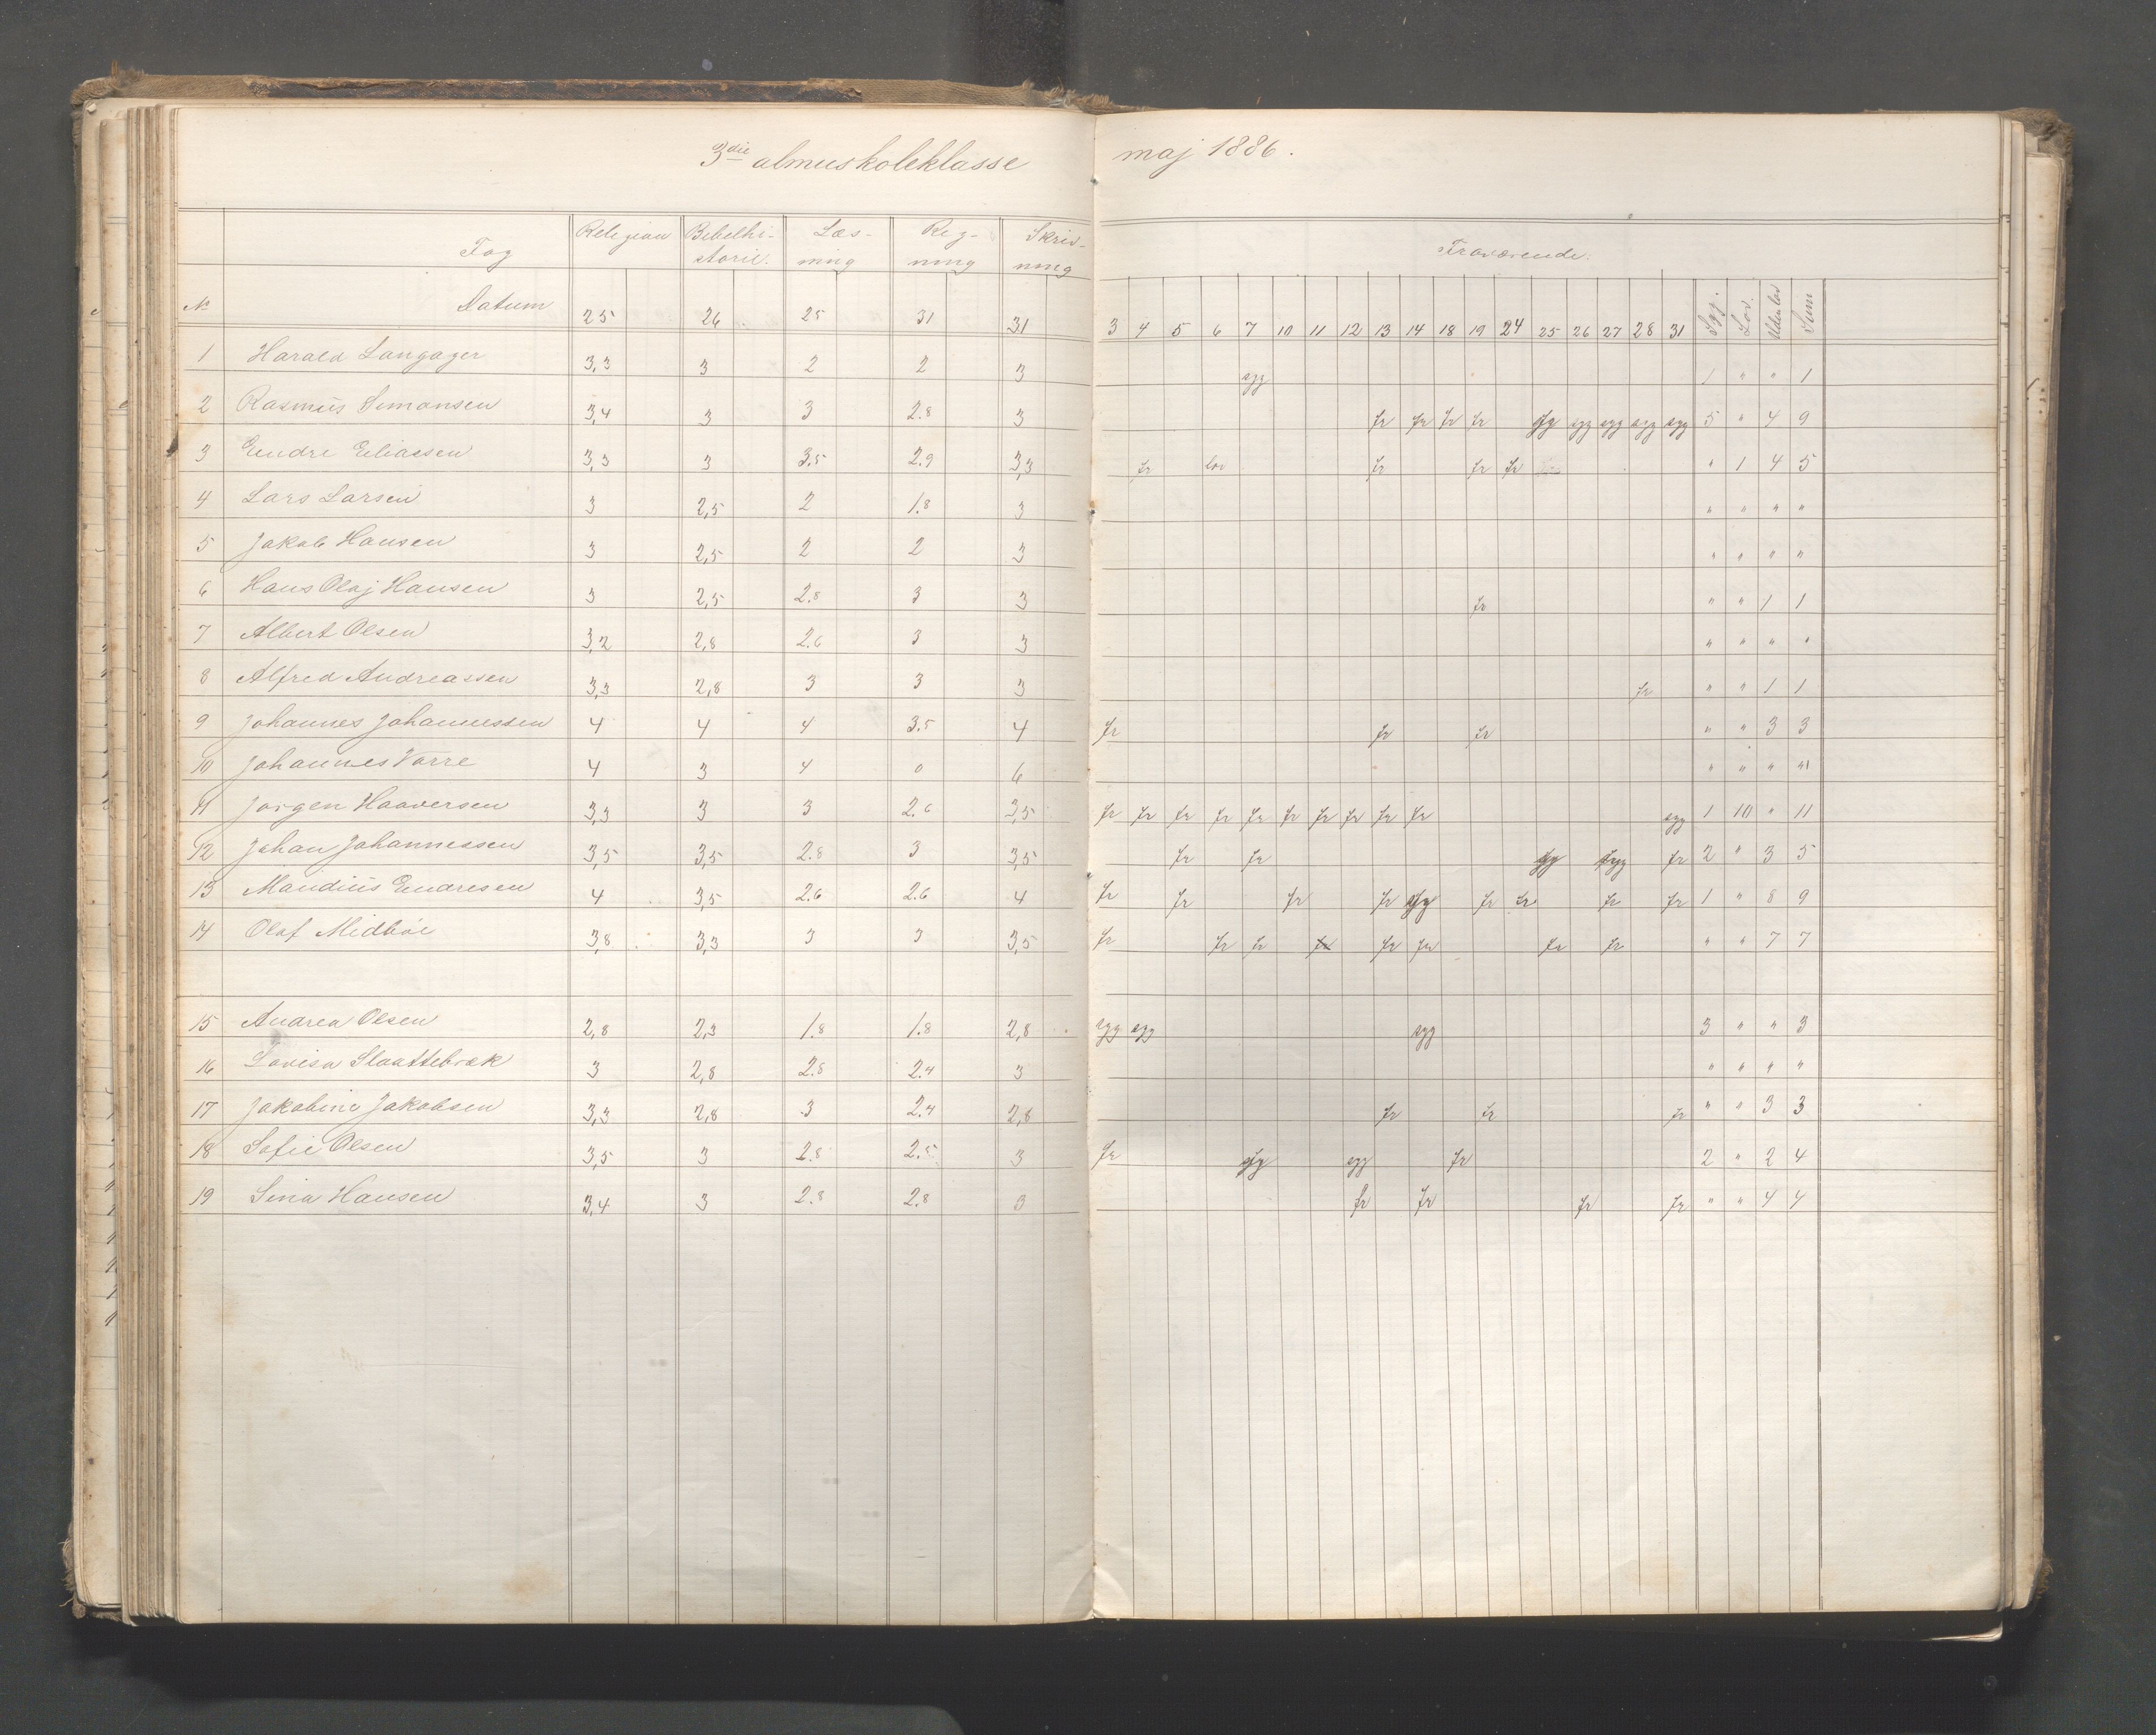 3die almueskoleklasse maj 1886.
Fag Religion Bibelhi- storie. Læs- ning Reg- ning Skriv- ning Fraværende.
No Datum 25 26 25 31 31 3 4 5 6 7 10 11 12 13 14 18 19 24 25 26 27 28 31 Syg. Lov. Uden lov Sum
1 Harald Langager 3,3 3 2 2 3 syg 1 " " 1
2 Rasmus Simonsen 3,4 3 3 2.8 3 fr fr fr fr syg syg syg syg syg 5 " 4 9
3 Endre Eliassen 3,3 3 3.5 2.9 3,3 fr lov fr fr fr " 1 4 5
4 Lars Larsen 3 2,5 2 1.8 3 " " " "
5 Jakob Hansen 3 2,5 2 2 3 " " " "
6 Hans Olaj Hansen 3 2,5 2.8 3 3 fr " " 1 1
7 Albert Olsen 3,2 2,8 2.6 3 3 " " " "
8 Alfred Andreassen 3,3 2,8 3 3 3 fr " " 1 1
9 Johannes Johannessen 4 4 4 3.5 4 fr fr fr " " 3 3
10 Johannes Vorre 4 3 4 0 6 " " " "
11 Jørgen Haaversen 3,3 3 3 2.6 3,5 fr fr fr fr fr fr fr fr fr fr syg 1 10 " 11
12 Johan Johannessen 3,5 3,5 2.8 3 3,5 fr fr syg syg fr 2 " 3 5
13 Mandius Endresen 4 3,5 2.6 2.6 4 fr fr fr fr syg fr fr fr fr 1 " 8 9
14 Olaf Midbøe 3,8 3,3 3 3 3,5 fr fr fr fr fr fr fr fr " " 7 7
15 Andrea Olsen 2,8 2,3 1.8 1.8 2,8 syg syg syg 3 " " 3
16 Lovisa Slaattebræk 3 2,8 2.8 2.4 3 " " " "
17 Jakobine Jakobsen 3,3 2,8 3 2.4 2,8 fr fr fr " " 3 3
18 Sofie Olsen 3,5 3 2.8 2.5 3 fr syg syg fr 2 " 2 4
19 Sina Hansen 3,4 3 2.8 2.8 3 fr fr fr fr " " 4 4